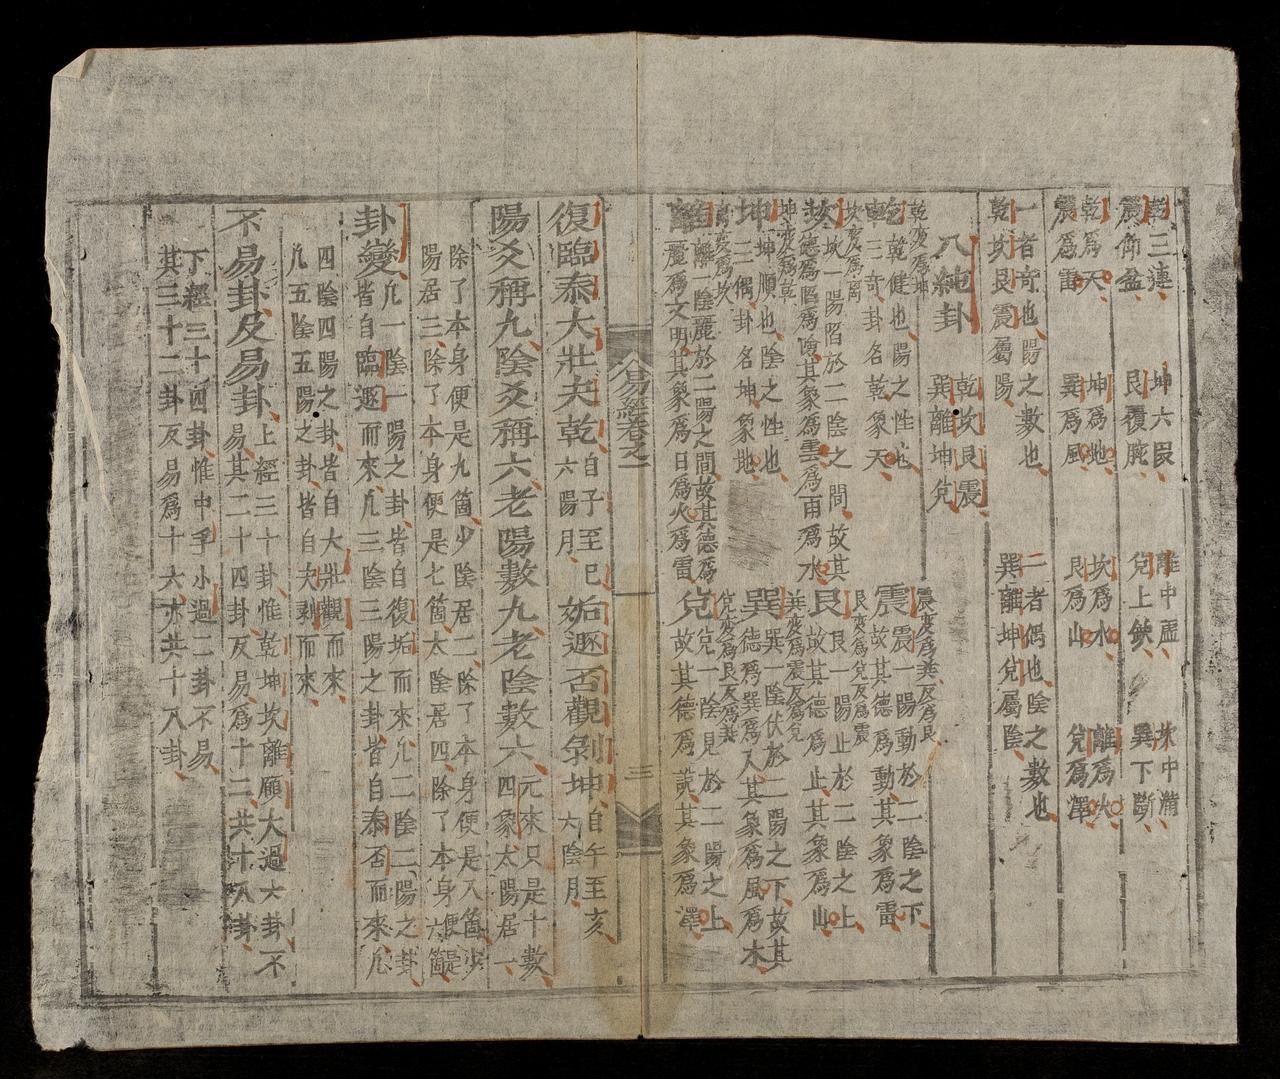 乾三連 坤六段 離中虛 坎中滿
震仰盆 艮覆碗 兌上缺 巽下斷
乾爲天 坤爲地 坎爲水 離爲火
震爲雷 巽爲風 艮爲山 兌爲澤
一者奇也陽之數也 二者偶也陰之數也
乾坎艮震屬陽 巽離坤兌屬陰
八純卦 乾坎艮震
巽離坤兌
乾變爲坤
乾 乾健也陽之性也
乾三奇卦名乾象天
震變爲巽反爲艮
震 震一陽動於二陰之下
故其德爲動其象爲雷
坎變爲离
坎 坎一陽陷於二陰之間故其
德爲陷爲險其象爲雲爲雨爲水
艮變爲兌反爲震
艮 艮一陽止於二陰之上
故其德爲止其象爲山
坤變爲乾
坤 坤順也陰之性也
坤三偶卦名坤象地
巽變爲震反爲兌
巽 巽一陰伏於二陽之下故其
德爲巽爲入其象爲風爲木
離變爲坎
離 離一陰麗於二陽之間故其德爲
麗爲文明其象爲日爲火爲雷
兌變爲艮反爲巽
兌 兌一陰見於二陽之上
故其德爲說其象爲澤
易經卷之一
三
復臨泰大壯夬乾 自子至巳
六陽月 姤遯否觀剝坤 自午至亥
六陰月
陽爻稱九陰爻稱六老陽數九老陰數六 元來只是十數
四象太陽居一
除了本身便是九箇少陰居二除了本身便是八箇少
陽居三除了本身便是七箇太陰居四除了本身便是六箇
卦變 凡一陰一陽之卦皆自復姤而來凡二陰二陽之卦
皆自臨遯而來凡三陰三陽之卦皆自泰否而來凡
四陰四陽之卦皆自大壯觀而來
凡五陰五陽之卦皆自夬剝而來
不易卦反易卦 上經三十卦惟乾坤坎離頤大過六卦不
易其二十四卦反易爲十二共十八卦
下經三十四卦惟中孚小過二卦不易
其三十二卦反易爲十六亦共十八卦